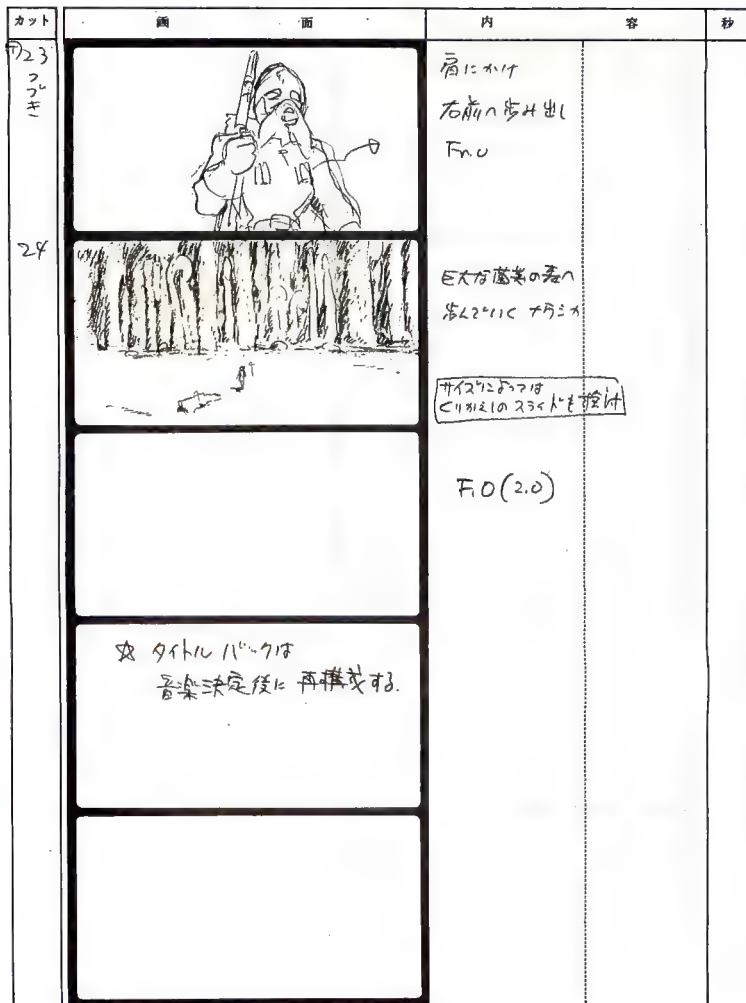 カット 画面 内容 秒
23
つづき
肩にかけ
右前へ歩み出し
Fr.O
24
巨大な菌類の森へ
歩んでいく ナウシカ
サイズによっては
くりかえしのスライドも検討
F.O(2.0)
☆ タイトルバックは
音楽決定後に再構成する.